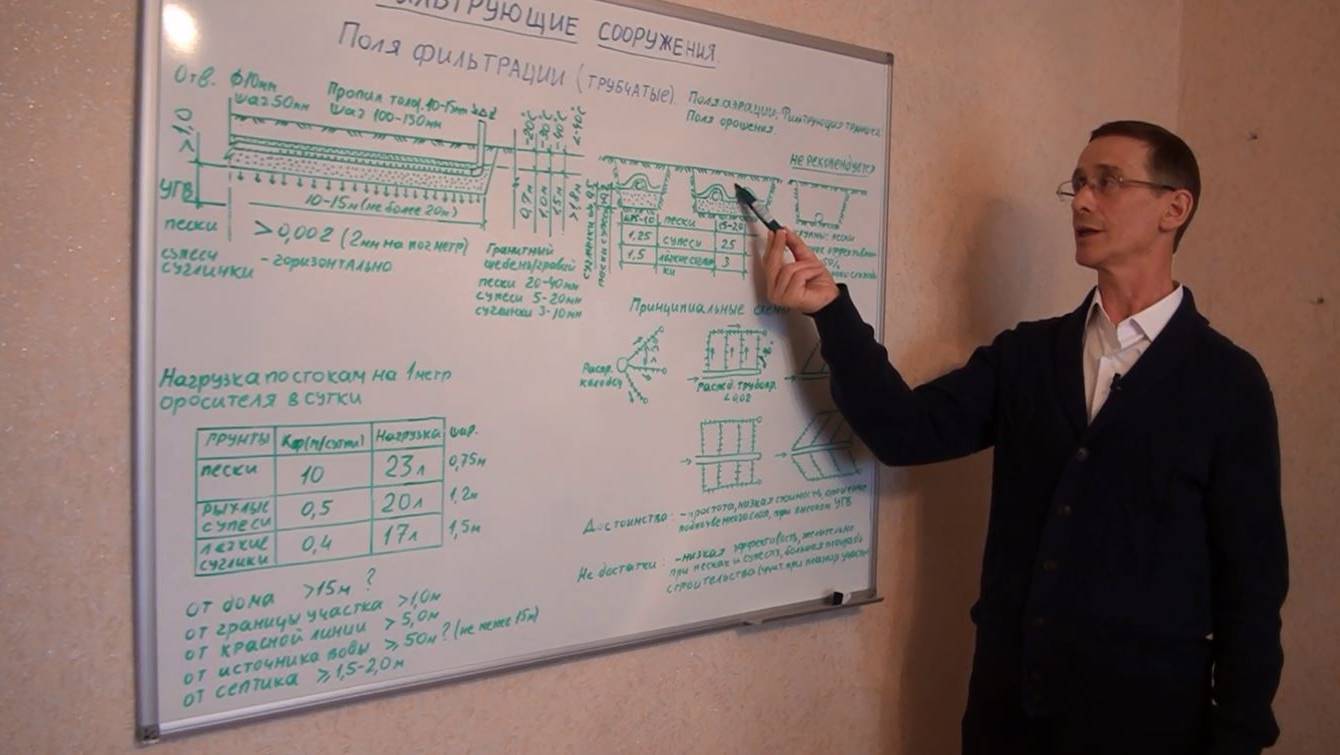 ФИЛЬТРУЮЩИЕ СООРУЖЕНИЯ.
Поля фильтрации (трубчатые).
Поля аэрации, Фильтрующая траншея
Поля орошения.
Отв. ф10мм
шаг 50мм
Пропил толщ. 10-15мм
шаг 100-150мм
не рекомендуется
>1,0
УГВ
10-15м (не более 20м)
-20°С
-30°С
-40°С
<-40°С
0,7м
1,0м
1,5м
>1,8м
пески
>0,002 (2мм на пог метр)
супеси
суглинки - горизонтально
Гранитный
щебень/гравий
пески 20-40мм
супеси 5-20мм
суглинки 3-10мм
пески 15-20
1,25 супеси 25
1,5 легкие суглин 3
ки
Принципиальные схемы
Распр.
колодец
Распд. трубопр.
<0,02
Нагрузка по стокам на 1 метр
оросителя в сутки
ГРУНТЫ Кф(м/сутки) Нагрузка шаг.
пески 10 23л 0,75м
рыхлые
супеси 0,5 20л 1,2м
легкие
суглинки 0,4 17л 1,5м
от дома >15м ?
от границы участка >1,0м
от красной линии >5,0м
от источника воды ≥50м ? (не менее 15м)
от септика ≥1,5-2,0м
Достоинства: - простота, низкая стоимость,
при высоком УГВ
Недостатки: - низкая эффективность, желательно
при песках и супесях, большая площадь
строительства